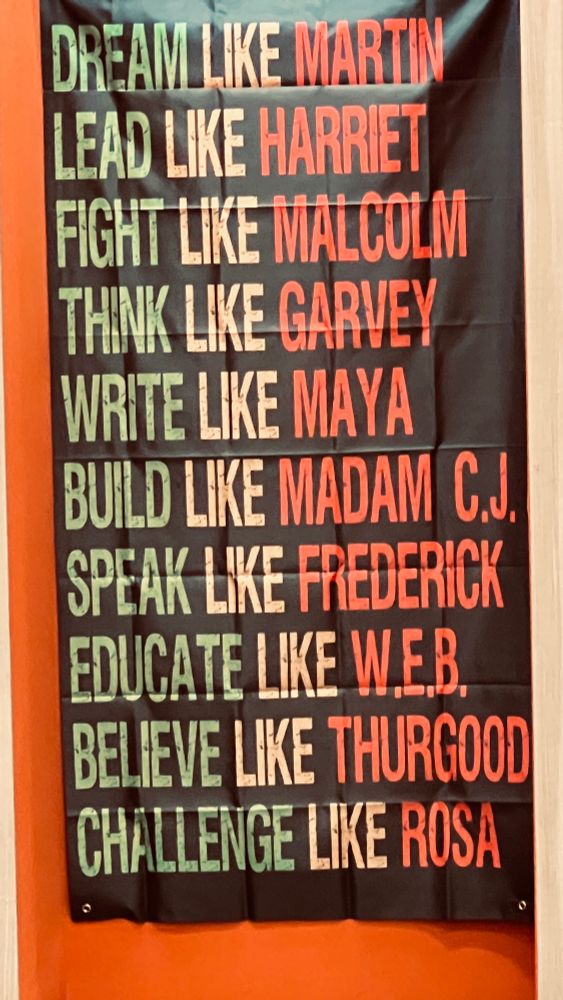 DREAM LIKE MARTIN
LEAD LIKE HARRIET
FIGHT LIKE MALCOLM
THINK LIKE GARVEY
WRITE LIKE MAYA
BUILD LIKE MADAM C.J.
SPEAK LIKE FREDERICK
EDUCATE LIKE W.E.B.
BELIEVE LIKE THURGOOD
CHALLENGE LIKE ROSA